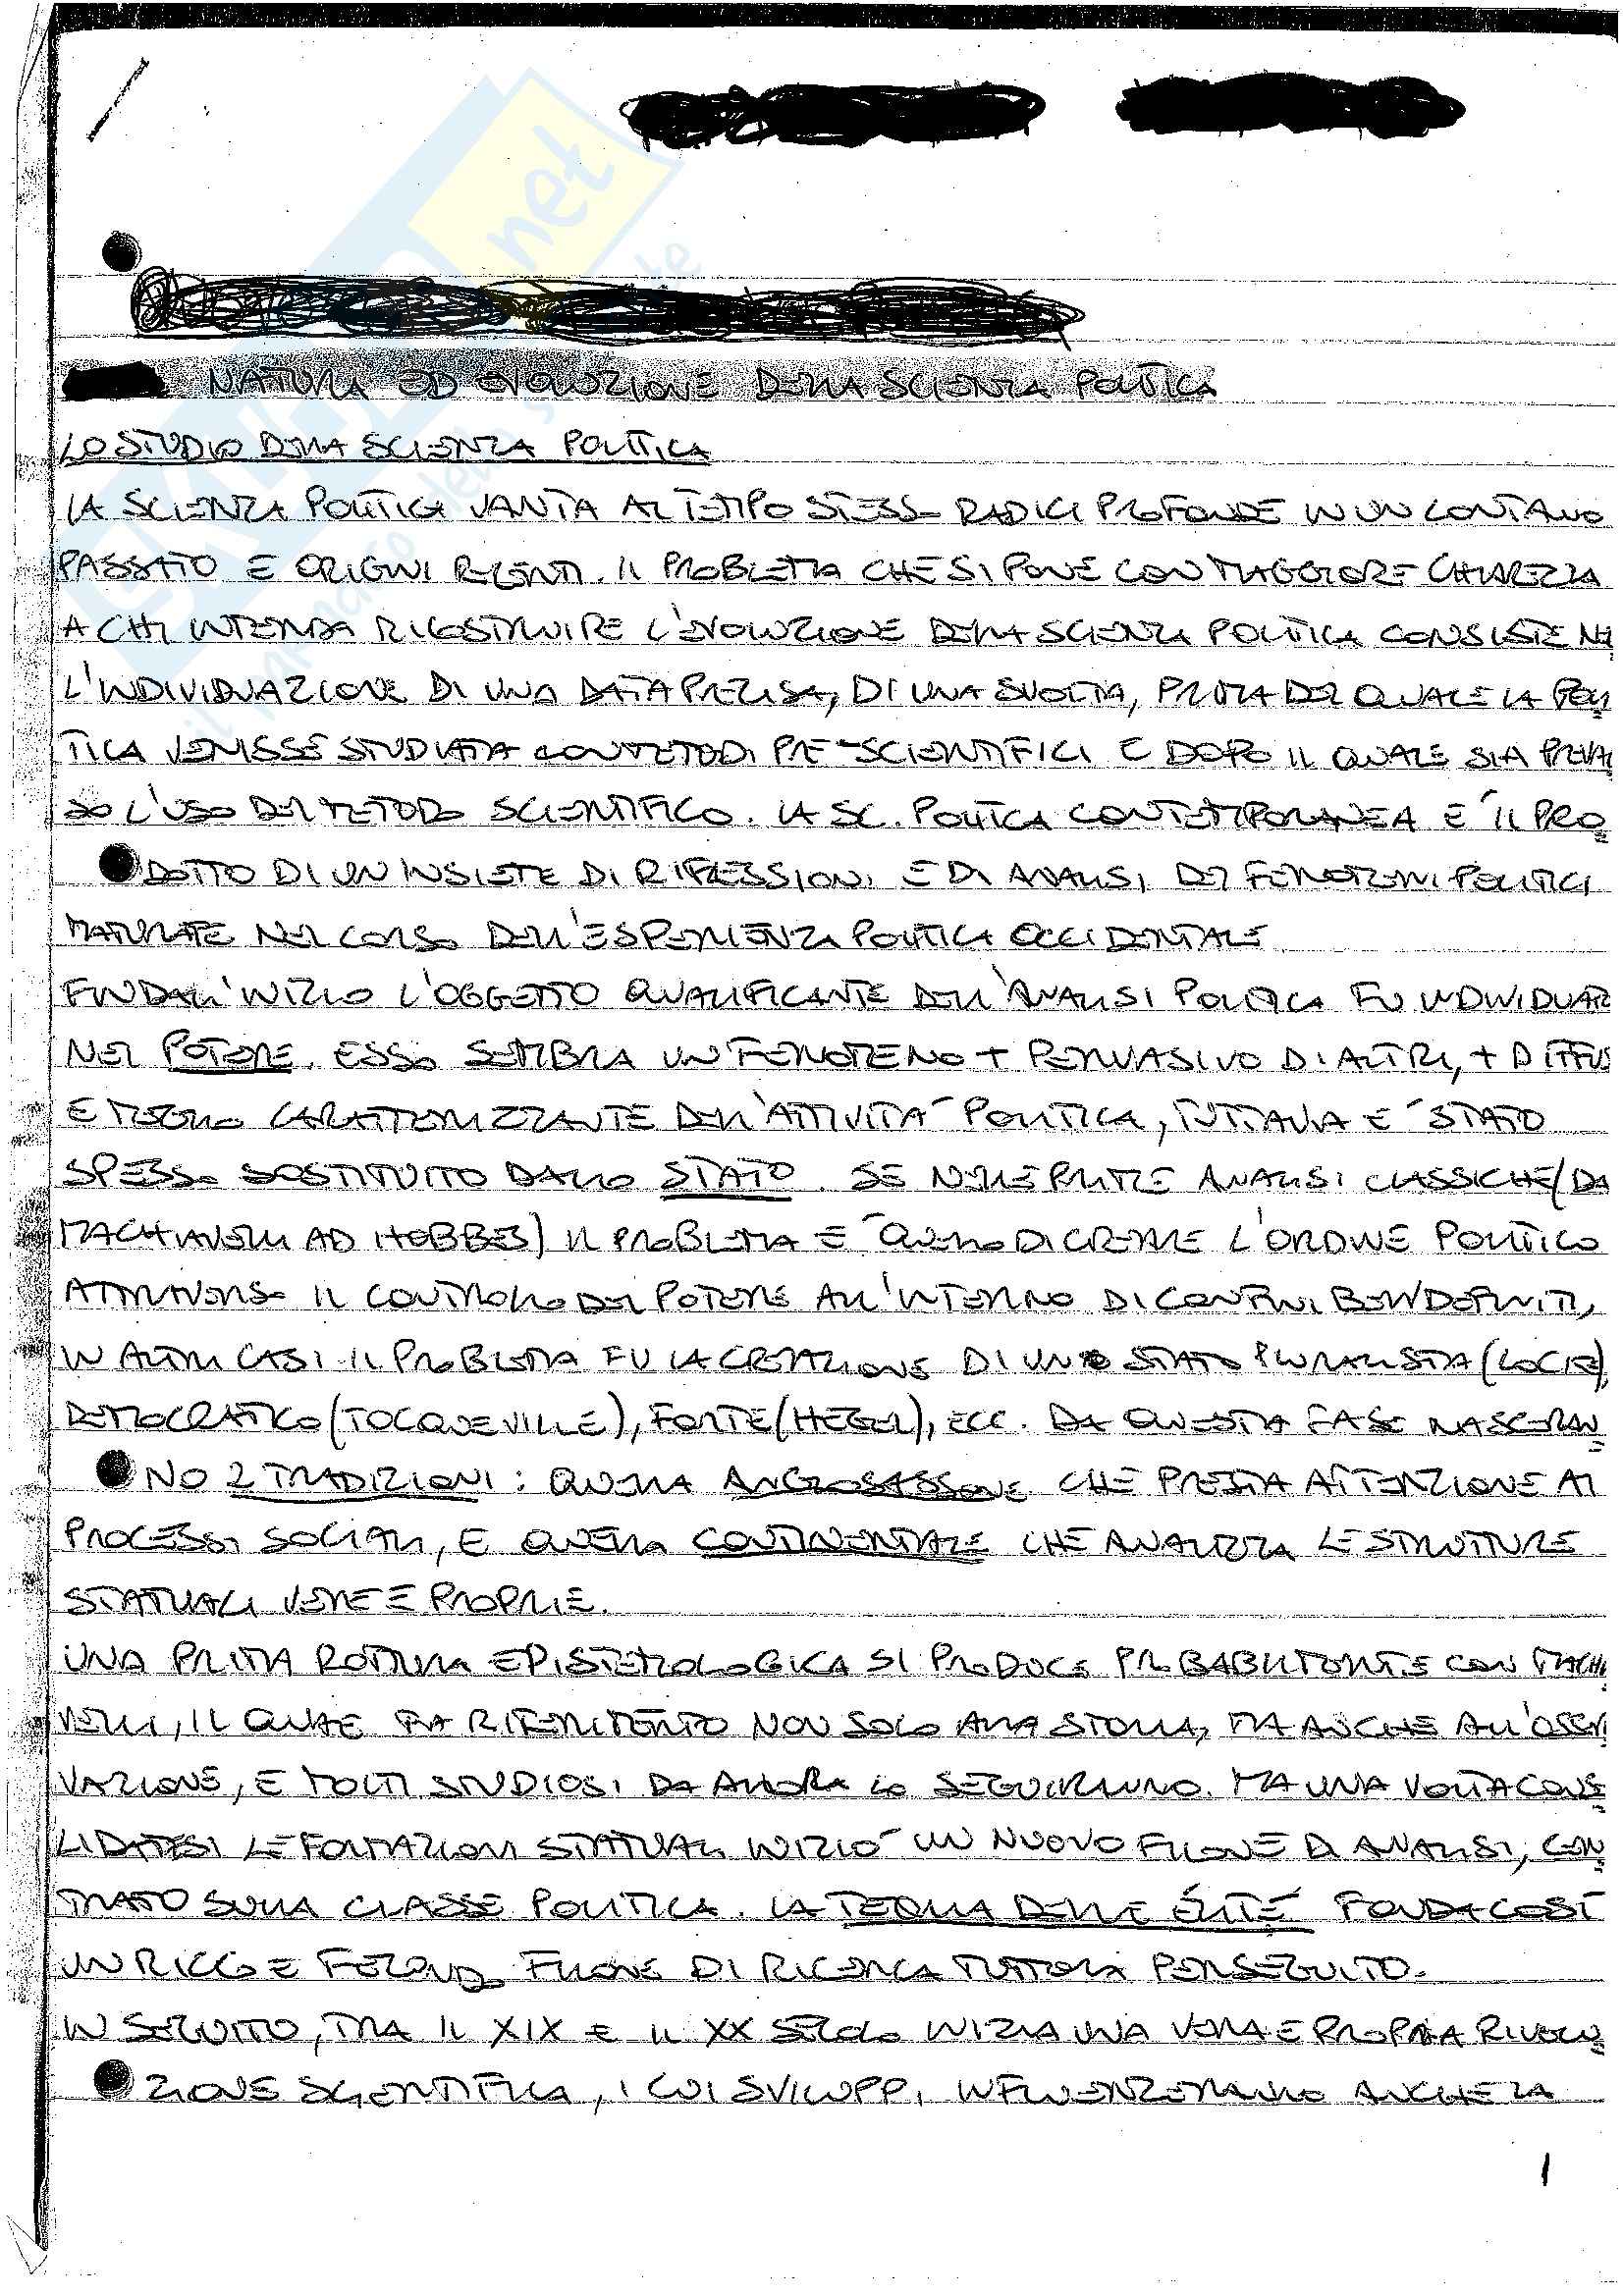 net
NATURA ED EVOLUZIONE DELLA SCIENZA POLITICA
LO STUDIO DELLA SCIENZA POLITICA
LA SCIENZA POLITICA VANTA AL TEMPO STESSO RADICI PROFONDE IN UN LONTANO
PASSATO E ORIGINI RECENTI. IL PROBLEMA CHE SI PONE CON MAGGIORE CHIAREZZA
A CHI INTENDA RICOSTRUIRE L'EVOLUZIONE DELLA SCIENZA POLITICA CONSISTE NEL
L'INDIVIDUAZIONE DI UNA DATA PRECISA, DI UNA SVOLTA, PRIMA DEL QUALE LA POLI
TICA VENISSE STUDIATA CON METODI PRE-SCIENTIFICI E DOPO IL QUALE SIA PREVAL
SO L'USO DEL METODO SCIENTIFICO. LA SC. POLITICA CONTEMPORANEA E' IL PRO
DOTTO DI UN INSIEME DI RIFLESSIONI E DI ANALISI DEI FENOMENI POLITICI
MATURATE NEL CORSO DELL'ESPERIENZA POLITICA OCCIDENTALE
FIN DALL'INIZIO L'OGGETTO QUALIFICANTE DELL'ANALISI POLITICA FU INDIVIDUAT
NEL POTERE. ESSO SEMBRA UN FENOMENO + PERVASIVO DI ALTRI, + DIFFUS
E MEGLIO CARATTERIZZANTE DELL'ATTIVITA' POLITICA, TUTTAVIA E' STATO
SPESSO SOSTITUITO DALLO STATO. SE NELLE PRIME ANALISI CLASSICHE (DA
MACHIAVELLI AD HOBBES) IL PROBLEMA E' QUELLO DI CREARE L'ORDINE POLITICO
ATTRAVERSO IL CONTROLLO DEL POTERE ALL'INTERNO DI CONFINI BEN DEFINITI,
IN ALTRI CASI IL PROBLEMA FU LA CREAZIONE DI UNO STATO PLURALISTA (LOCKE),
DEMOCRATICO (TOCQUEVILLE), FORTE (HEGEL), ECC. DA QUESTA FASE NASCERAN
NO 2 TRADIZIONI: QUELLA ANGLOSASSONE CHE PRESTA ATTENZIONE AI
PROCESSI SOCIALI, E QUELLA CONTINENTALE CHE ANALIZZA LE STRUTTURE
STATUALI VERE E PROPRIE.
UNA PRIMA ROTTURA EPISTEMOLOGICA SI PRODUCE PROBABILMENTE CON MACHIA
VELLI, IL QUALE FA RIFERIMENTO NON SOLO ALLA STORIA, MA ANCHE ALL'OSSER
VAZIONE, E MOLTI STUDIOSI DA ALLORA LO SEGUIRANNO. MA UNA VOLTA CONSO
LIDATESI LE FORMAZIONI STATUALI INIZIO' UN NUOVO FILONE DI ANALISI, CEN
TRATO SULLA CLASSE POLITICA. LA TEORIA DELLE ÉLITE FONDA COSÌ
UN RICCO E FECONDO FILONE DI RICERCA TUTTORA PERSEGUITO.
IN SEGUITO, TRA IL XIX E IL XX SECOLO INIZIA UNA VERA E PROPRIA RIVOLU
ZIONE SCIENTIFICA, I CUI SVILUPPI INFLUENZERANNO ANCHE LA
1